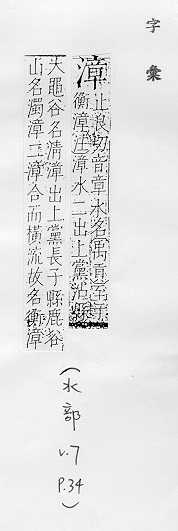 字彙
漳 止良切音章水名禹貢常于
衡漳注漳水二出上黨沾縣
大黽谷名清漳出上黨長子縣鹿谷
山名濁漳二漳合而橫流故名衡漳
(水部
v.7
P.34)